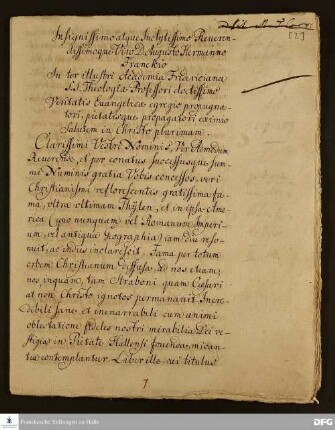 [2]
Insignissimo atque Inclytissimo Reveren-
dissimoque Viro D. Augusto Hermanno
Franckio
In ter illustri Academia Fridericiana
S.S. Theologiæ Professori doctissimo
Veritatis Evangelicæ egregio propugna-
tori, pietatisque propagatori eximio
Salutem in Christo plurimam.
Clarissimi Vestri Nominis, Vir Admodum
Reverende, et per conatus Successusque sum-
mi Numinis gratia Vobis concessos, veri
Christianismi reflorescentis gratissima fa-
ma, ultra ultimam Thylen, et in ipsa Ame-
rica (quo nunquam vel Romanum Imperi-
um, vel antiqua Geographia) jam diu reso-
nuit, ac indies inclarescit. Fama per totum
orbem Christianum diffusa, ad nos etiam,
nos, inquam, tam Straboni quam Cæsari
at non Christo ignotos permanavit. Incre-
dibili sane et inenarrabili cum animi
oblectatione fideles nostri mirabilia Dei ve-
stigia in Pietate Hallensi mican-
tia contemplantur. Liber ille cui titulus
7
Franckesche Stiftungen zu Halle